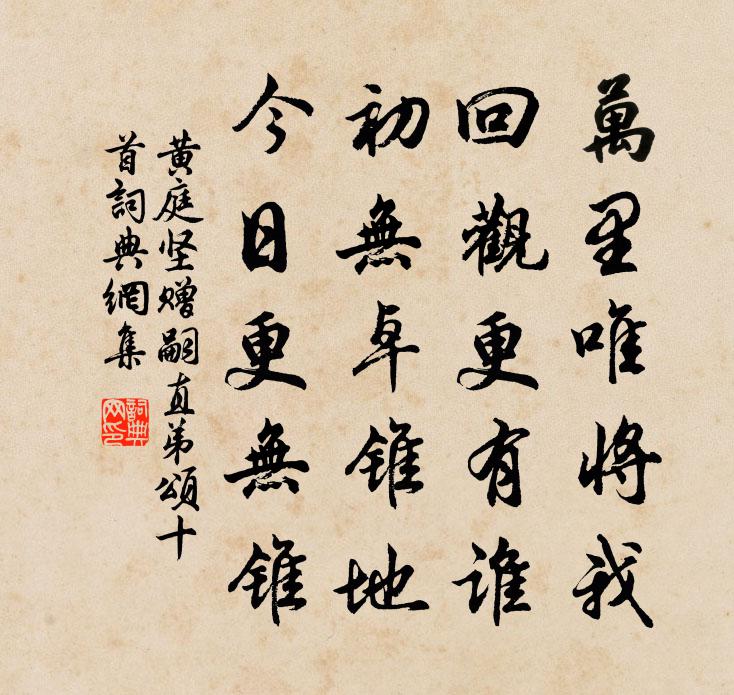 萬里唯將我
回觀更有誰
初無卓錐地
今日更無錐
黄庭坚贈嗣直弟頌十
首詞典網集
詞典网印